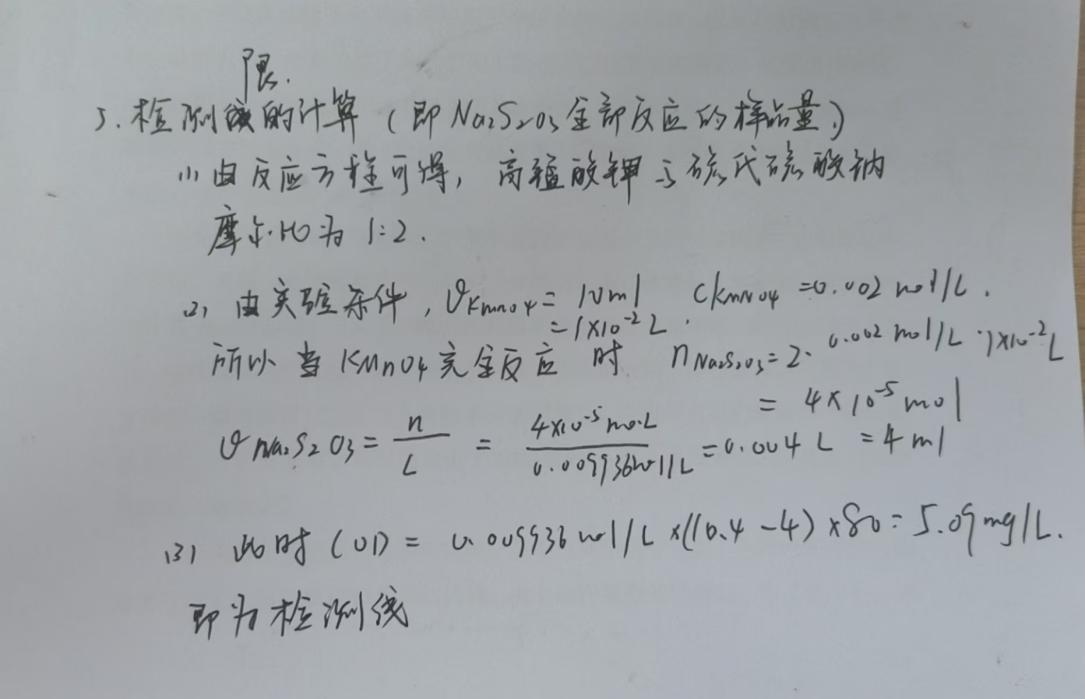 限.
5. 检测线的计算 (即Na2S2O3全部反应的样品量.)
(1) 由反应方程可得, 高锰酸钾与硫代硫酸钠
摩尔比为 1:2.
(2) 由实验条件, VKMnO4 = 10ml CKMnO4 = 0.002 mol/L.
= 1×10⁻² L.
所以 当 KMnO4 完全反应 时 nNa2S2O3 = 2· 0.002 mol/L · 1×10⁻² L
= 4×10⁻⁵ mol
VNa2S2O3 = n/L = 4×10⁻⁵ mol/0.009936mol/L = 0.004 L = 4 ml
(3) 此时 (OI) = 0.009936 mol/L ×(10.4-4)×80 = 5.09 mg/L.
即为检测线